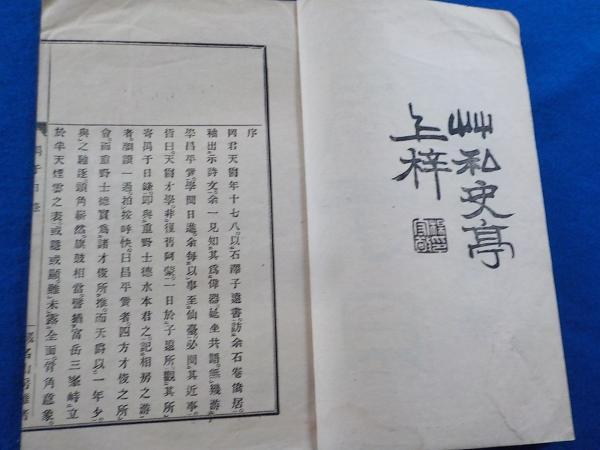 艸私史亭
上梓
序
岡君天爵年十七八以石澤子遠書訪余石卷僑居
袖出示詩文余一見知其爲偉器延坐共語無幾游
學昌平黌學問日進余每以事至仙臺必聞其近事
皆曰天爵才學非復舊阿蒙一日於子遠所觀其所
寄禺于日錄即與重野士德水本君之記相房之游
者劇讀一過拍按呼快曰昌平黌者四方才俊之所
會而重野士德實爲諸才俊所推而天爵以一年少
與之馳逐頭角嶄然旗鼓相當譬猶富岳三峯峙立
於半天煙雲之表或隱或顯雖未露全面脊角意象